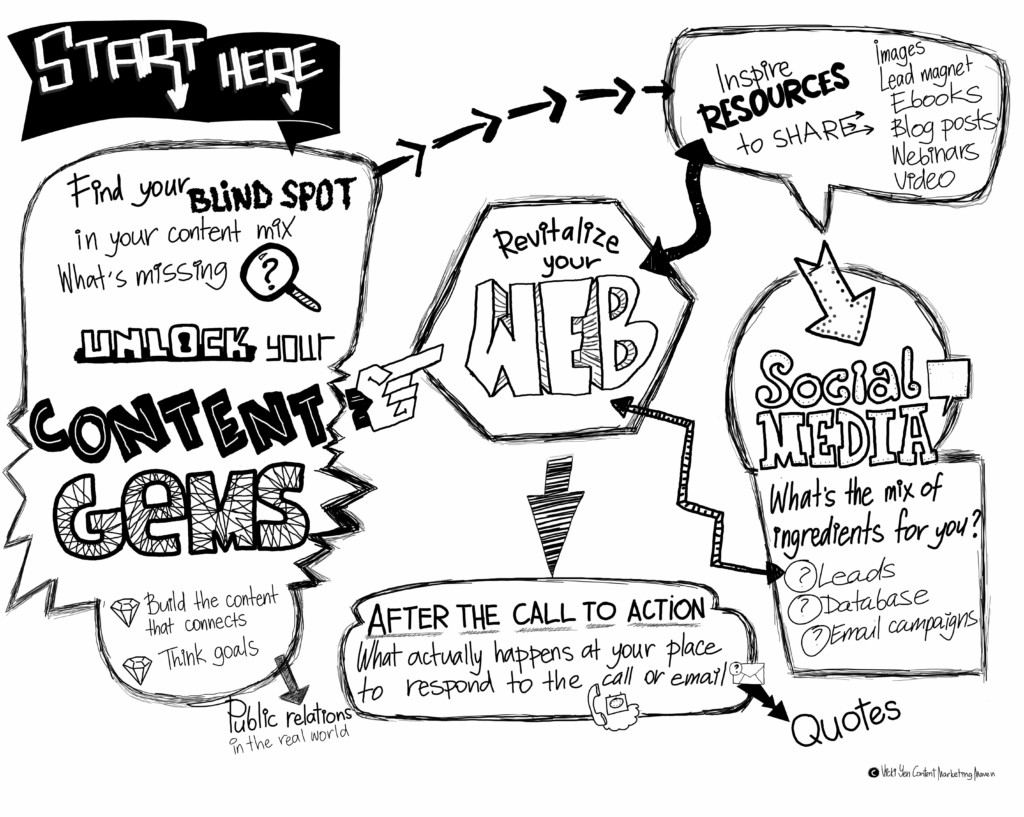 START HERE
Find your BLIND SPOT
in your content mix
What's missing ?
UNLOCK your
CONTENT
GEMS
Build the content
that connects
Think goals
Public relations
in the real world
Revitalize
your
WEB
Inspire
RESOURCES
to SHARE
Images
Lead magnet
Ebooks
Blog posts
Webinars
Video
Social
MEDIA
What's the mix of
ingredients for you?
? Leads
? Database
? Email campaigns
AFTER THE CALL TO ACTION
What actually happens at your place
to respond to the call or email
?
Quotes
© Content Marketing Maven